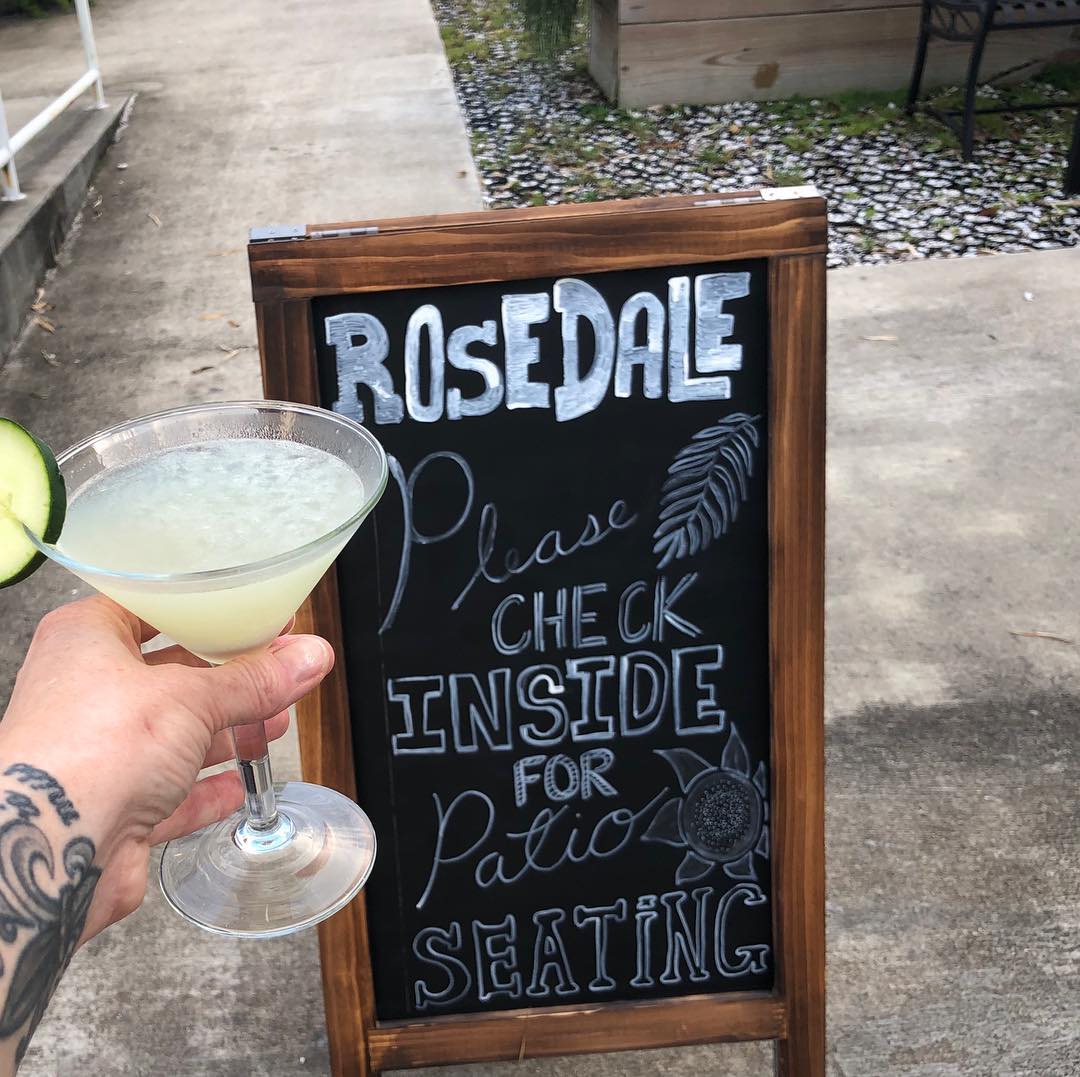 ROSEDALE
Please
CHECK
INSIDE
FOR
Patio
SEATiNG